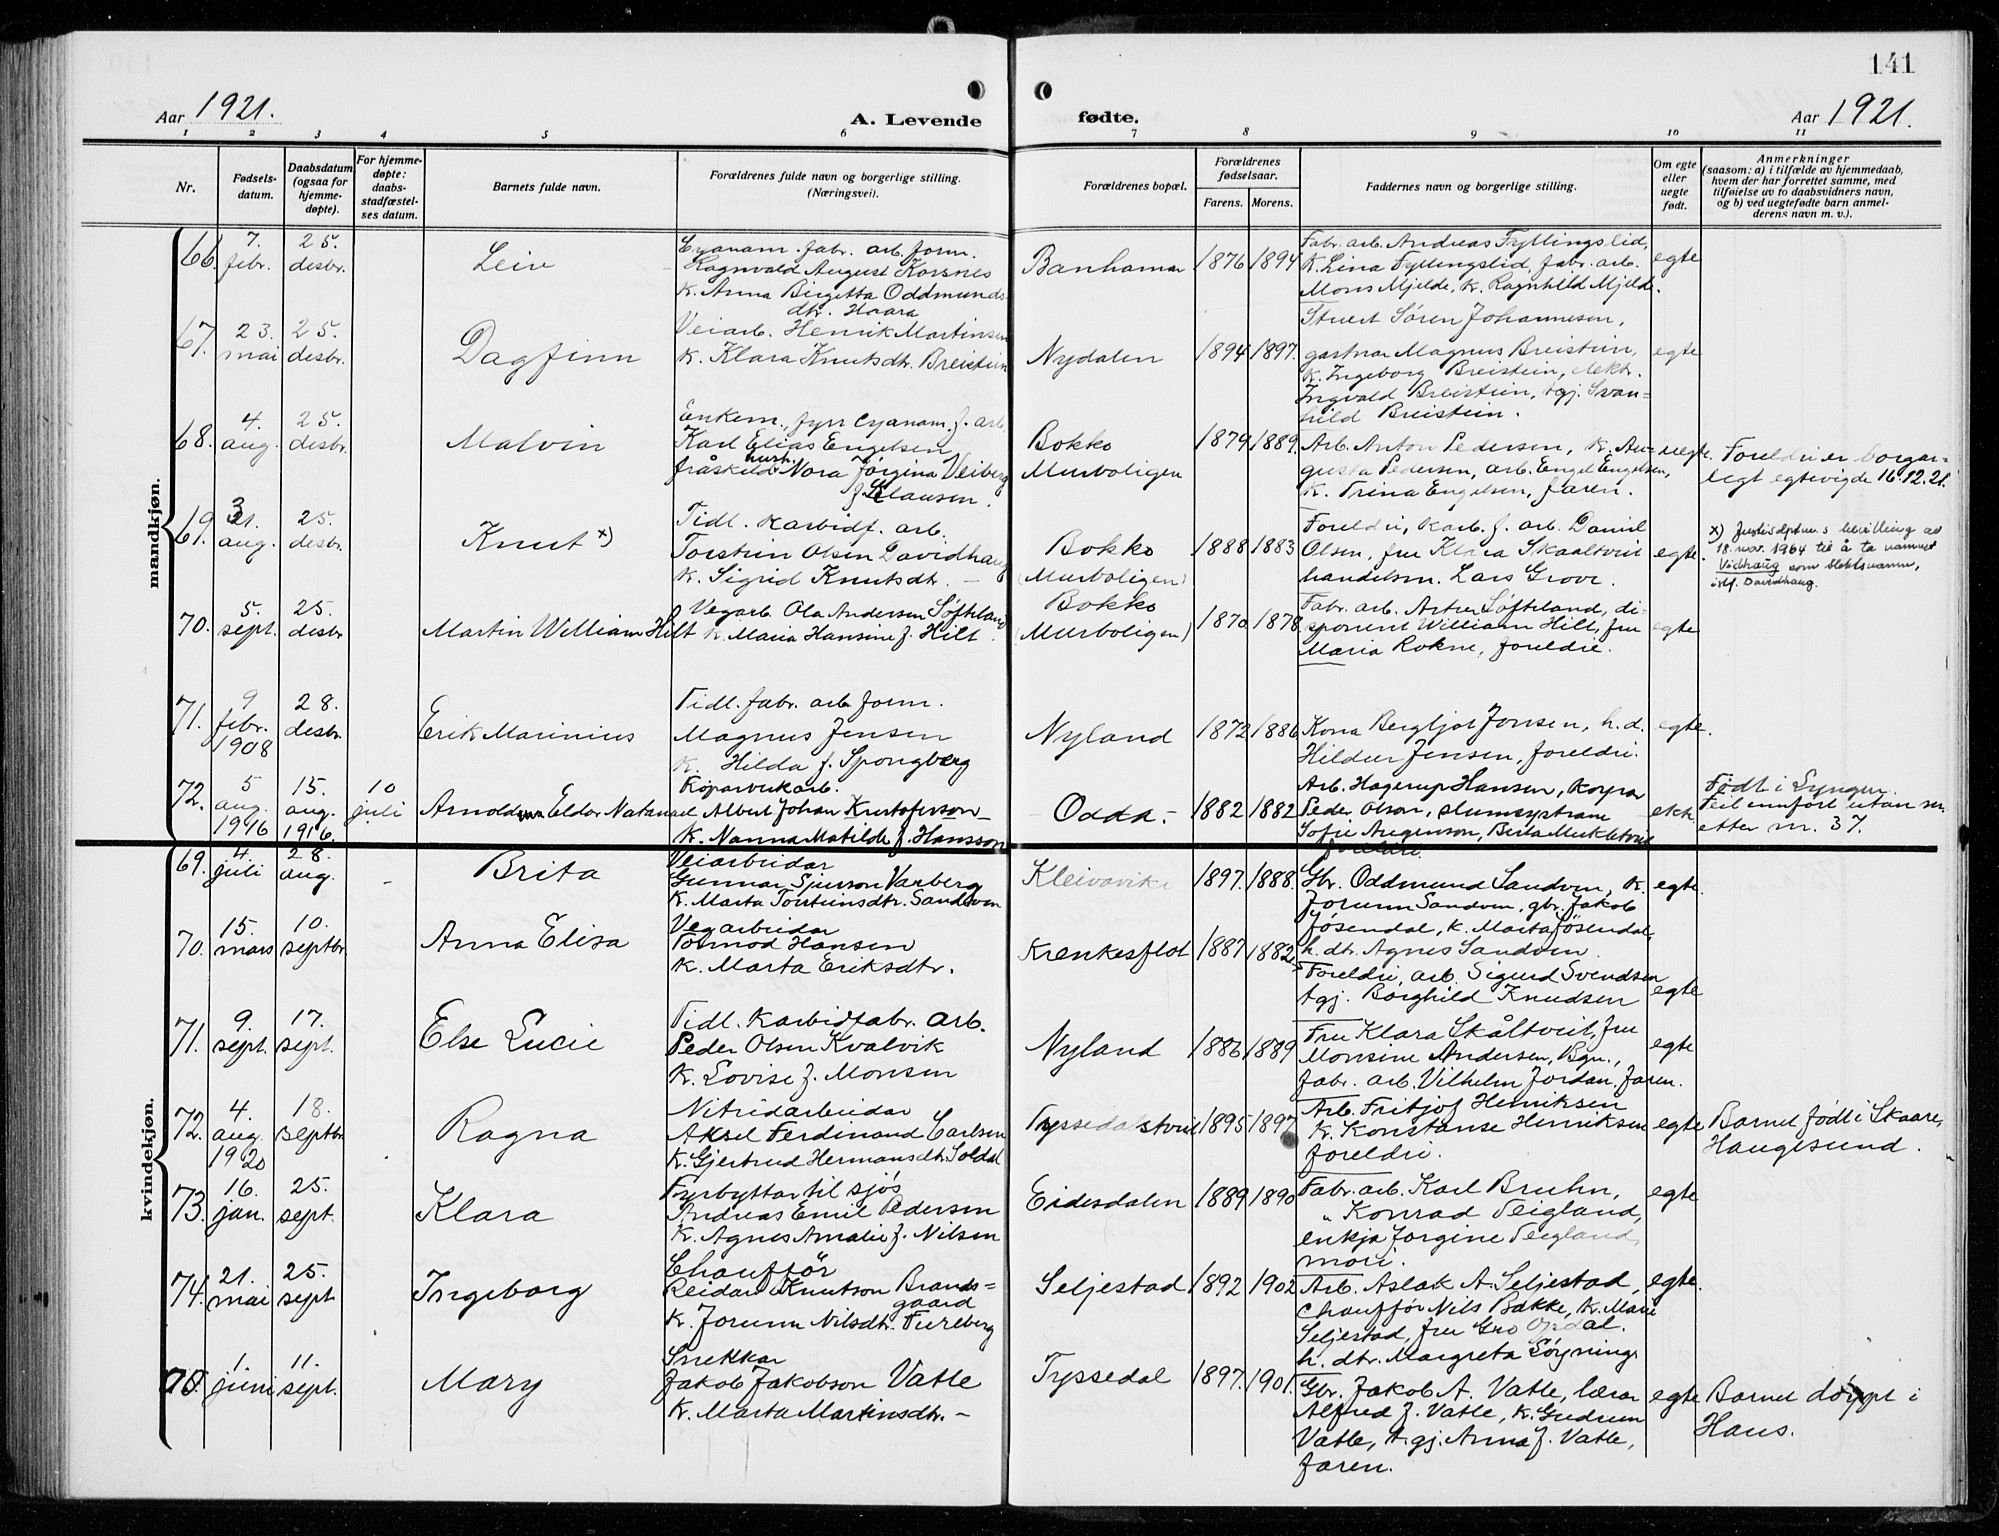 141
Aar 1921.
A. Levende fødte.
Aar 1921.
1 2 3 4 5 6 7 8 9 10 11
Nr.
Fødsels-
datum.
Daabsdatum
(ogsaa for
hjemme-
døpte).
For hjemme-
døpte:
daabs-
stadfæstel-
ses datum.
Barnets fulde navn.
Forældrenes fulde navn og borgerlige stilling.
(Næringsvei).
Forældrenes bopæl.
Forældrenes
fødselsaar.
Farens. Morens.
Faddernes navn og borgerlige stilling.
Om egte
eller
uegte
født.
Anmerkninger
(saasom: a) i tilfælde av hjemmedaab,
hvem der har forrettet samme, med
tilføielse av to daabsvidners navn,
og b) ved uegtefødte barn anmel-
derens navn m. v.).
mandkjøn.
66. 7. febr. 25. desbr. Leiv
Cyanam. fabr. arb. form.
Ragnvald August Korsnes
K. Anna Birgitta Oddmunds-
dtr. Haara
Banhamar 1876 1894
Fabr. arb. Andreas Fyllingslid,
K. Lina Fyllingslid, fabr. arb.
Mons Mjelde, K. Ragnhild Mjelde.
egte
67. 23. mai 25. desbr. Dagfinn
Veiarb. Henrik Martinsen
K. Klara Knutsdtr. Breistein
Nydalen 1894 1897.
Stuert Søren Johannesen,
gartnar Magnus Breistein,
K. Ingeborg Breistein, elektr.
Ingvald Breistein, tgj. Svan-
hild Breistein.
egte
68. 4. aug. 25. desbr. Malvin
Enkem., fyrr Cyanam. f. arb.
Karl Elias Engelsen
fråskild hush. Nora Jørgina Veiberg
f. Klausen.
Bokko
Murboligen
1879 1889.
Arb. Anton Pedersen, K. Au-
gusta Pedersen, arb. Engel Engelsen,
K. Trina Engelsen, faren.
uegte.
Foreldri er borgar-
legt egtevigde 16.12.21.
69. 31. aug. 25. desbr. Knut x)
Tidl. Karbidf. arb.
Torstein Olsen Davidhaug
K. Sigrid Knutsdtr. —
Bokko
(Murboligen)
1888 1883
Foreldri, Karb. f. arb. Daniel
Olsen, fru Klara Skaaltveit
handelsm. Lars Grove.
egte.
x) Justisdptm.s bevilling av
18. nov. 1964 til å ta namnet
Vidhaug som slektsnamn,
istf. Davidhaug.
70. 5. sept. 25. desbr Martin William Hilt
Vegarb. Ola Andersen Søfteland
K. Maria Hansine f. Hilt.
Bokko
(Murboligen)
1870 1878
Fabr. arb. Artur Søfteland, di-
sponent William Hilt, fru
Maria Rokne, foreldri.
egte
71. 9 febr. 1908 28. desbr Erik Marinius
Tidl. fabr. arb. form.
Magnus Jensen
K. Hilda f. Spongberg
Nyland 1872 1886
Kona Bergljot Jonsen, h.d.
Hildur Jensen, foreldri.
egte.
72. 5 aug. 1916 15. aug. 1916. 10 juli Arnold Eldor Natanael
Røparverkarb.
Albert Johan Kristoferson
K. Nanna Matilde f. Hansson
Odda.- 1882 1882
Arb. Hagerup Hansen, Korpral
Peder Olson, slumsystram
Sofie Augenson, Berta Mukletveit
foreldri.
ekte.
Født i Lyngør.
Feil innført utan nr.
etter nr. 37.
kvindekjøn.
69. 4. juli 28. aug. - Brita
Veiarbeidar
Gunnar Sjurson Varberg
K. Marta Torsteinsdtr. Sandven
Kleivavik 1897. 1888.
Gbr. Oddmund Sandven, K.
Jorunn Sandven, gbr. Jakob
Jøsendal, K. Marta Jøsendal,
h. dt. Agnes Sandven.
egte.
70. 15. mars 10. septbr. Anna Elisa
Vegarbeidar
Tormod Hansen
K. Marta Eriksdtr.
Krenkesflot 1887 1882
Foreldri, arb. Sigurd Svendsen
tgj. Borghild Knudsen
egte
71. 9. sept. 17. sept. Else Lucie
Tidl. Karbidfabr. arb.
Peder Olsen Kvalvik
K. Lovise f. Monsen
Nyland 1886 1889
Fru Klara Skåltveit, fru
Monsine Andersen, Bgn.,
fabr. arb. Vilhelm Jordan, faren.
egte
72. 4. aug. 1920 18. septbr Ragna
Nitridarbeidar
Aksel Ferdinand Carlsen
K. Gjertrud Hermansdtr. Soldal
Tyssedalstveit 1895 1897
Arb. Fritjof Henriksen
K. Konstanse Henriksen
foreldri.
egte
Barnet født i Skaare,
Haugesund.
73. 16. jan. 25. sept. Klara
Fyrbyttar til sjøs
Andreas Emil Pedersen
K. Agnes Amalie f. Nilsen
Eidesdalen 1889 1890
Fabr. arb. Karl Bruhn,
" Konrad Teigland,
enkja Jorgine Teigland,
mori.
egte
74. 21. mai 25. sept Ingeborg
Chauffør
Reidar Knutson Brands-
gaard
K. Jorunn Nilsdtr. Fureberg
Seljestad 1892 1902
Arb. Aslak A. Seljestad,
chauffør Nils Bakke, K. Mari
Seljestad, fru Gro Opdal.
h. dtr. Margreta Løyning.
egte.
75. 1. juni 11. sept. Mary
Snekkar
Jakob Jakobson Vatle
K. Marta Martinsdtr. -
Tyssedal 1897. 1901.
Gbr. Jakob A. Vatle, lærar
Alfred J. Vatle, K. Gudrun
Vatle, tgj. Anna J. Vatle,
faren.
egte
Barnet døypt i
Haus.